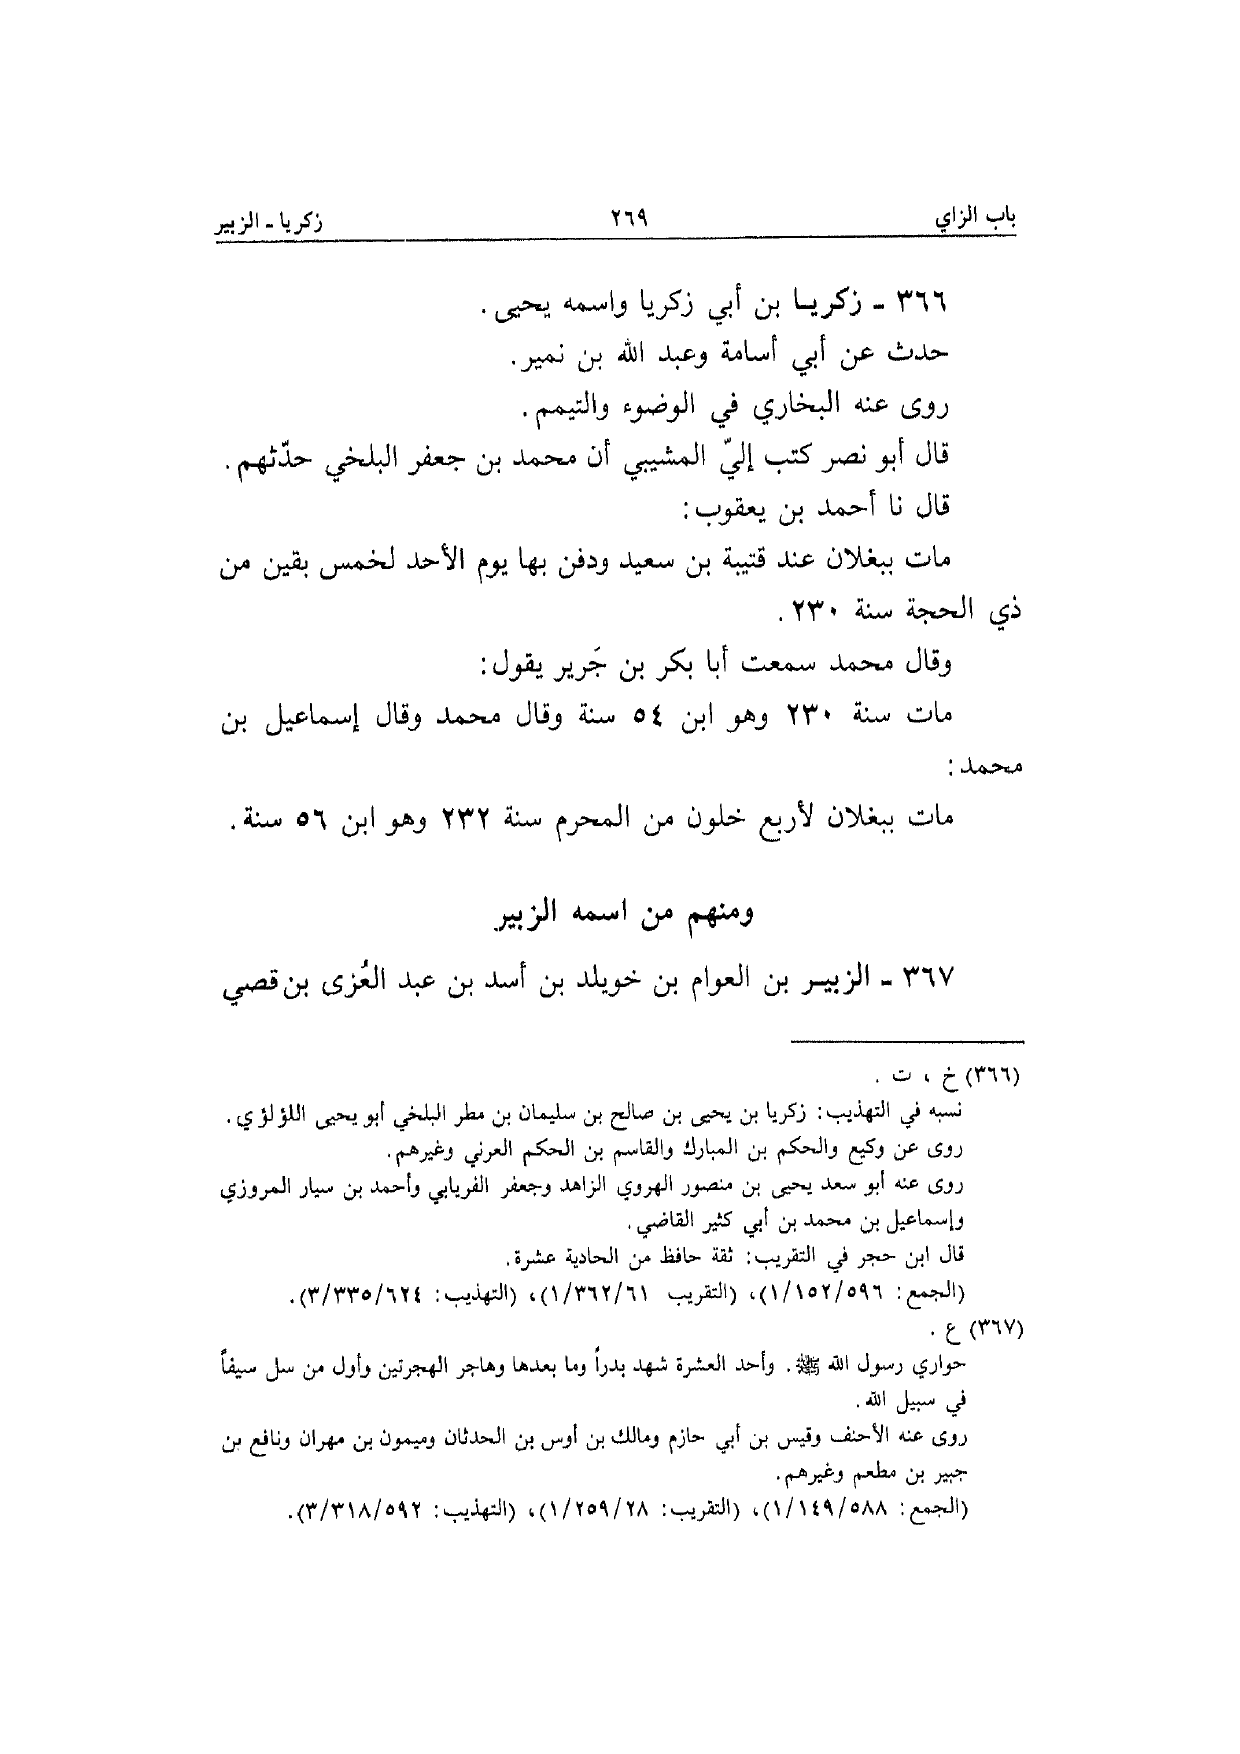 باب الزاي ٢٦٩ زكريا - الزبير
٣٦٦ - زكريـا بن أبي زكريا واسمه يحيى.
حدث عن أبي أسامة وعبد الله بن نمير.
روى عنه البخاري في الوضوء والتيمم.
قال أبو نصر كتب إليّ المشيبي أن محمد بن جعفر البلخي حدّثهم.
قال نا أحمد بن يعقوب:
مات ببغلان عند قتيبة بن سعيد ودفن بها يوم الأحد لخمس بقين من
ذي الحجة سنة ٢٣٠.
وقال محمد سمعت أبا بكر بن جَرير يقول:
مات سنة ٢٣٠ وهو ابن ٥٤ سنة وقال محمد وقال إسماعيل بن
محمد:
مات ببغلان لأربع خلون من المحرم سنة ٢٣٢ وهو ابن ٥٦ سنة.
ومنهم من اسمه الزبير
٣٦٧ - الزبيـر بن العوام بن خويلد بن أسد بن عبد العُزى بن قصي
(٣٦٦) خ ، ت .
نسبه في التهذيب: زكريا بن يحيى بن صالح بن سليمان بن مطر البلخي أبو يحيى اللؤلؤي.
روى عن وكيع والحكم بن المبارك والقاسم بن الحكم العرني وغيرهم.
روى عنه أبو سعد يحيى بن منصور الهروي الزاهد وجعفر الفريابي وأحمد بن سيار المروزي
وإسماعيل بن محمد بن أبي كثير القاضي.
قال ابن حجر في التقريب: ثقة حافظ من الحادية عشرة.
(الجمع: ١/١٥٢/٥٩٦)، (التقريب ١/٣٦٢/٦١)، (التهذيب: ٣/٣٣٥/٦٢٤).
(٣٦٧) ع .
حواري رسول الله ﷺ. وأحد العشرة شهد بدراً وما بعدها وهاجر الهجرتين وأول من سل سيفاً
في سبيل الله.
روى عنه الأحنف وقيس بن أبي حازم ومالك بن أوس بن الحدثان وميمون بن مهران ونافع بن
جبير بن مطعم وغيرهم.
(الجمع: ١/١٤٩/٥٨٨)، (التقريب: ١/٢٥٩/٢٨)، (التهذيب: ٣/٣١٨/٥٩٢).